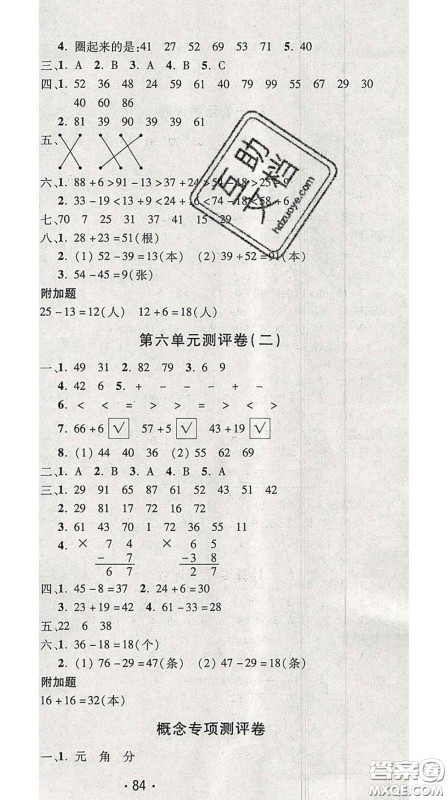 4. 圈起来的是:41 27 52 69 53 5. 40
三、1. A 2. B 3. A 4. B 5. C
四、1. 52 36 48 24 59 61 40 79 55 67 29 30
40 60 86
2. 81 39 90 39 39 61
五、
六、1. 88+6>91-13>37+24>61-18>25
2. 33-19<13+9<24+6<74-18<51+9
七、70 7 25 37 41 15 29
八、1. 28+23=51(根)
2. (1) 52-39=13(本) (2) 39+52=91(本)
3. 54-45=9(张)
附加题
25-13=12(人) 12+6=18(人)
互助文档
hdzuoye.com
第六单元测评卷(二)
一、1. 49 31 2. 82 79 3. 6 9
4. 42 6 5. + - - + -
6. < < = > > <
7. 66+6 √ 57+5 √ 43+19 √
8. (1) 44 40 36 (2) 55 62 69
二、1. A 2. B 3. A 4. B 5. A
三、1. 29 91 65 87 61 52 43 52 71
2. 29 81 17 72 16 72
3. 61 43 70 1 72 36 11 35
4. × 7 4 × 6 5
- 7 -3 8
6 7 2 7
四、1. 45-8=37 2. 24+6=30
3. 23+19=42 4. 61-33=28
五、22 6 38
六、1. 36-18=18(个)
2. (1) 76-29=47(条) (2) 47-29=18(条)
附加题
16+16=32(本)
概念专项测评卷
一、1. 元 角 分
· 84 ·
答案圈
MXQE.COM